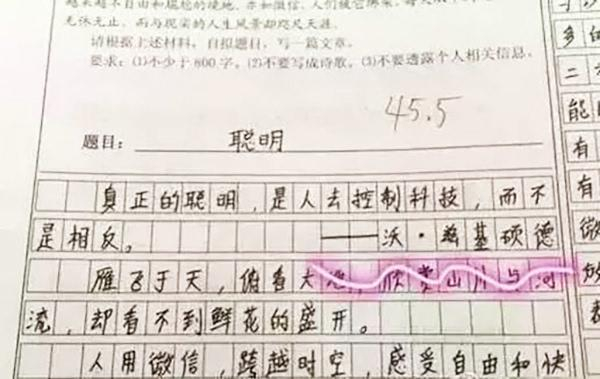 越来越不自由和尴尬的境地。亦如微信,人们被它绑架,
无休无止,而与现实的人生风景却咫尺天涯。
请根据上述材料,自拟题目,写一篇文章。
要求:(1)不少于800字。(2)不要写成诗歌。(3)不要透露个人相关信息。
45.5
题目: 聪明
真正的聪明,是人去控制科技,而不
是相反。 ——沃·兹基硕德
雁飞于天,俯看大地,欣赏山川与河
流,却看不到鲜花的盛开。
人用微信,跨越时空,感受自由和快
多的
二
能
有
有
微